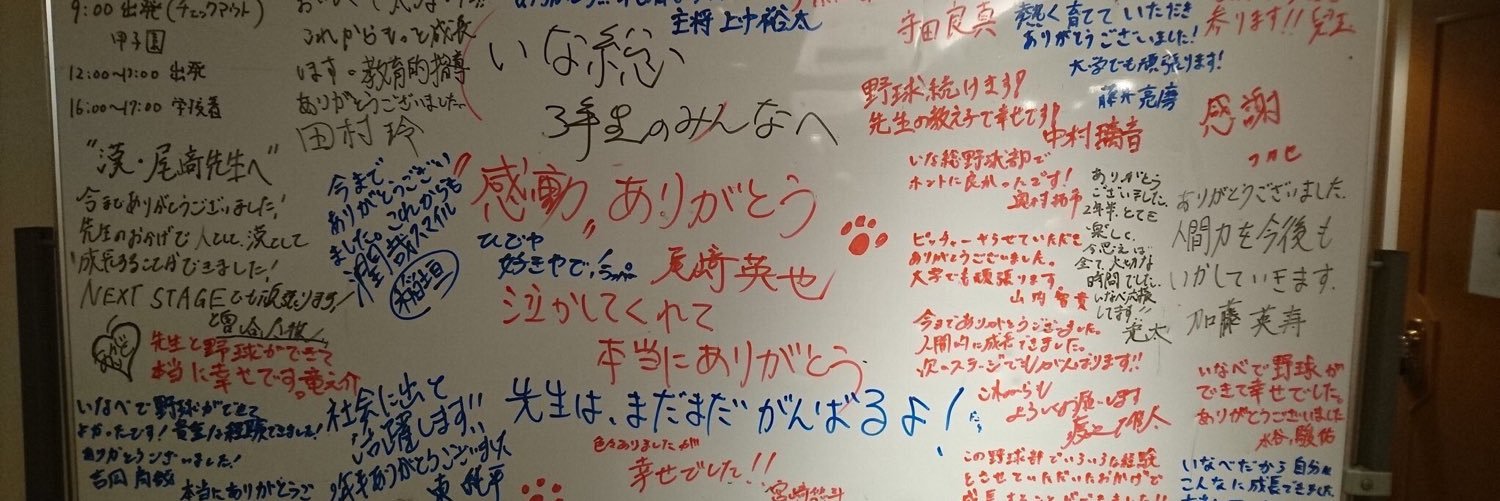 9:00 出発(チェックアウト)
甲子園
12:00~13:00 出発
16:00~17:00 学校着
これからもっと成長
します。教育的指導
ありがとうございました。
田村 玲
"漢・尾﨑先生へ"
今までありがとうございました!
先生のおかげで人として、漢として
成長することができました!
NEXT STAGEでも頑張ります!
先生と野球ができて
本当に幸せです。竜之介
いなべで野球ができて
よかったです! 貴重な経験できました!
ありがとうございました!
本当にありがとうご
今まで、
ありがとうござい
ました。これからも
スマイル
稲垣
社会に出て
活躍します!!
年半ありがとうございました
東 純平
主将 上中裕太
いな総
3年生のみんなへ
"感動" ありがとう
ひでや
好きやで。
尾﨑英也
泣かしてくれて
本当にありがとう
先生は、まだまだがんばるよ!
色々ありましたが
幸せでした!!
守田良真
野球続けます!
先生の教え子で幸せです!
中村璃音
熱く育てていただき
ありがとうございました!
大学でも頑張ります!
藤井亮磨
参ります!! 児玉
感謝
いな総野球部で
ホントに良かったです!
奥村拓市
ピッチャーやらせていただき
ありがとうございました。
大学でも頑張ります。
山内智貴
今までありがとうございました。
人間的に成長できました。
次のステージでもがんばります!!
これからも
よろしくお願いします
ありがとう
ございました。
2年半、とても
楽しく、
今思えば
全て大切な
時間でした。
いなべ応援
してます!!
亮太
ありがとうございました。
人間力を今後も
いかしていきます。
加藤英寿
いなべで野球が
できて幸せでした。
ありがとうございました
水谷駿佑
この野球部でいろいろな経験
とさせていただいたおかげで
成長することができました!!
いなべだから自分は
こんなに成長できました